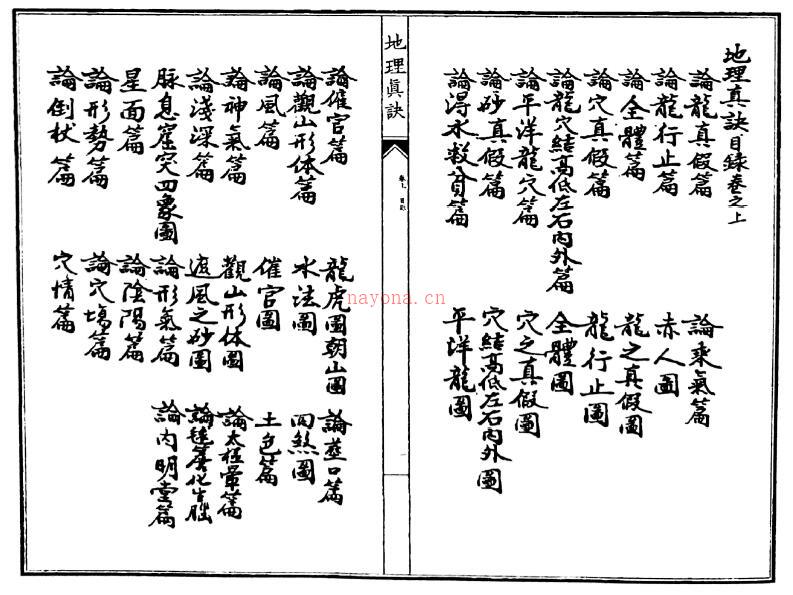 地理真訣目錄卷之上
論龍真假篇 論乘氣篇
論龍行止篇 赤人圖
論全體篇 龍之真假圖
論穴真假篇 龍行止圖
論龍穴結高低左右內外篇 全體圖
論平洋龍穴篇 穴之真假圖
論砂真假篇 穴結高低左右內外圖
論得水救貧篇 平洋龍圖
地理眞訣
卷上 目錄
論催官篇 龍虎圖朝山圖 論葬口篇
論觀山形体篇 水法圖 四煞圖
論風篇 催官圖 土色篇
論神氣篇 觀山形体圖 論太極暈篇
論淺深篇 遮風之砂圖 論毬簷化生腦
脉息窟突四象圖 論形氣篇 論內明堂篇
星面篇 論陰陽篇
論形勢篇 論穴塲篇
論倒杖篇 穴情篇
nayona.cn